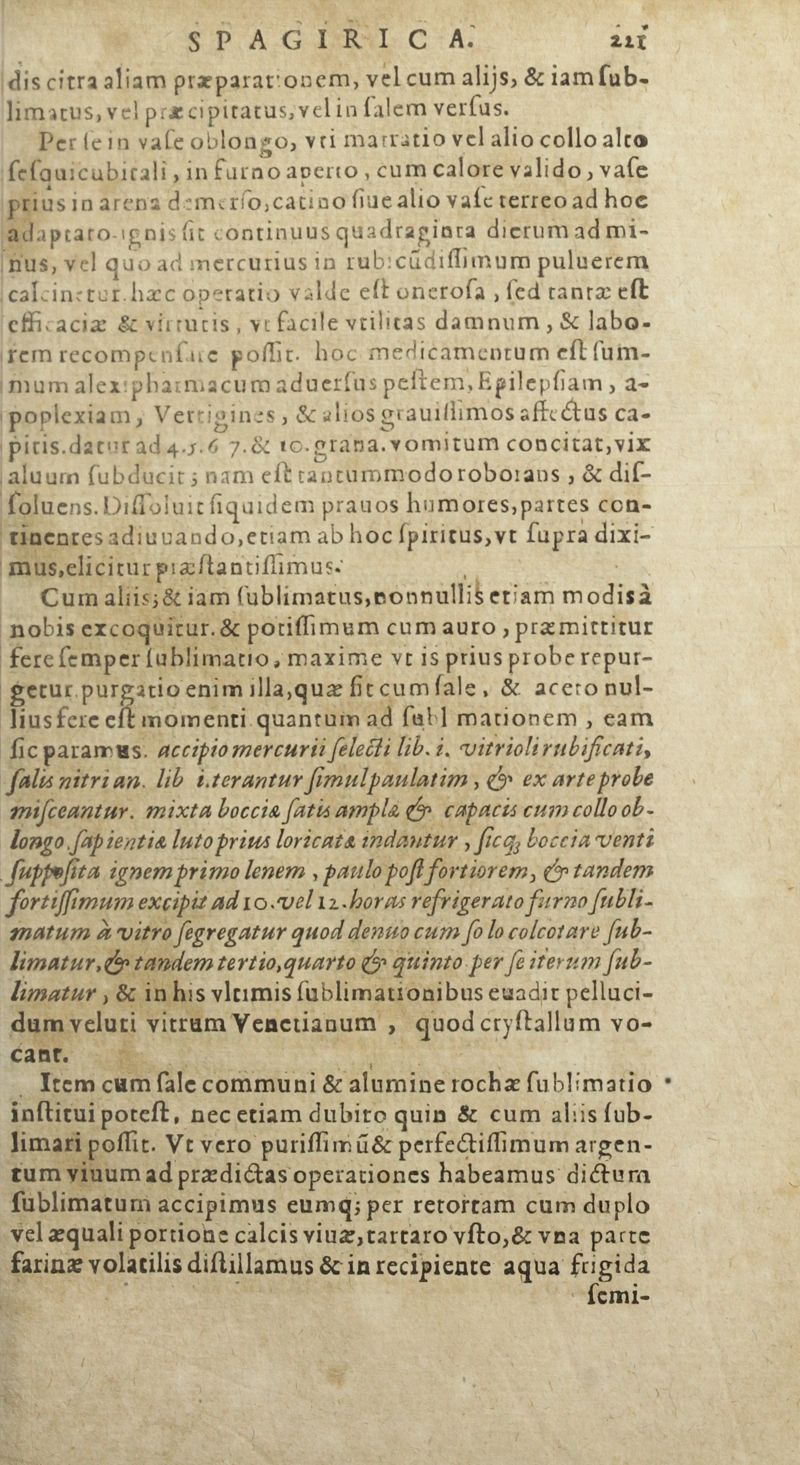 SPAGIRICA. 211
dis citra aliam præparationem, vel cum alijs, & iam ſub-
limatus, vel præcipitatus, vel in ſalem verſus.
Per ſe in vaſe oblongo, vti matratio vel alio collo alto
ſeſquicubitali, in furno aperto, cum calore valido, vaſe
prius in arena demerſo, catino ſiue alio vaſe terreo ad hoc
adaptato. ignis ſit continuus quadraginta dierum ad mi-
nus, vel quo ad mercurius in rubicūdiſſimum puluerem
calcinetur. hæc operatio valde eſt oneroſa, ſed tantæ eſt
efficaciæ & virtutis, vt facile vtilitas damnum, & labo-
rem recompenſare poſſit. hoc medicamentum eſt ſum-
mum alexipharmacum aduerſus peſtem, Epilepſiam, a-
poplexiam, Vertigines, & alios grauiſſimos affectus ca-
pitis. datur ad 4.5.6 7.& 10. grana. vomitum concitat, vix
aluum ſubducit; nam eſt tantummodo roborans, & diſ-
ſoluens. Diſſoluit ſiquidem prauos humores, partes con-
tinentes adiuuando, etiam ab hoc ſpiritus, vt ſupra dixi-
mus, elicitur præſtantiſſimus.
Cum aliis; & iam ſublimatus, nonnullis etiam modis à
nobis excoquitur. & potiſſimum cum auro, præmittitur
fere ſemper ſublimatio, maxime vt is prius probe repur-
getur. purgatio enim illa, quæ fit cum ſale, & aceto nul-
lius fere eſt momenti quantum ad ſubl mationem, eam
ſic paramus. accipio mercurii ſelecti lib. i. vitrioli rubificati,
ſalis nitri an. lib i. terantur ſimul paulatim, & ex arte probe
miſceantur. mixta bocciæ ſatis amplæ & capacis cum collo ob-
longo ſapientiæ luto prius loricatæ indantur, ſicq; boccia venti
ſuppoſita ignem primo lenem, paulo poſt fortiorem, & tandem
fortiſſimum excipit ad 10. vel 12. horas refrigerato furno ſubli-
matum à vitro ſegregatur quod denuo cum ſo lo colcotare ſub-
limatur, & tandem tertio, quarto & quinto per ſe iterum ſub-
limatur, & in his vltimis ſublimationibus euadit pelluci-
dum veluti vitrum Venetianum, quod cryſtallum vo-
cant.
Item cum ſale communi & alumine rochæ ſublimatio
inſtitui poteſt, nec etiam dubito quin & cum aliis ſub-
limari poſſit. Vt vero puriſſimū & perfectiſſimum argen-
tum viuum ad prædictas operationes habeamus dictum
ſublimatum accipimus eumq; per retortam cum duplo
vel æquali portione calcis viuæ, tartaro vſto, & vna parte
farinæ volatilis diſtillamus & in recipiente aqua frigida
ſemi-